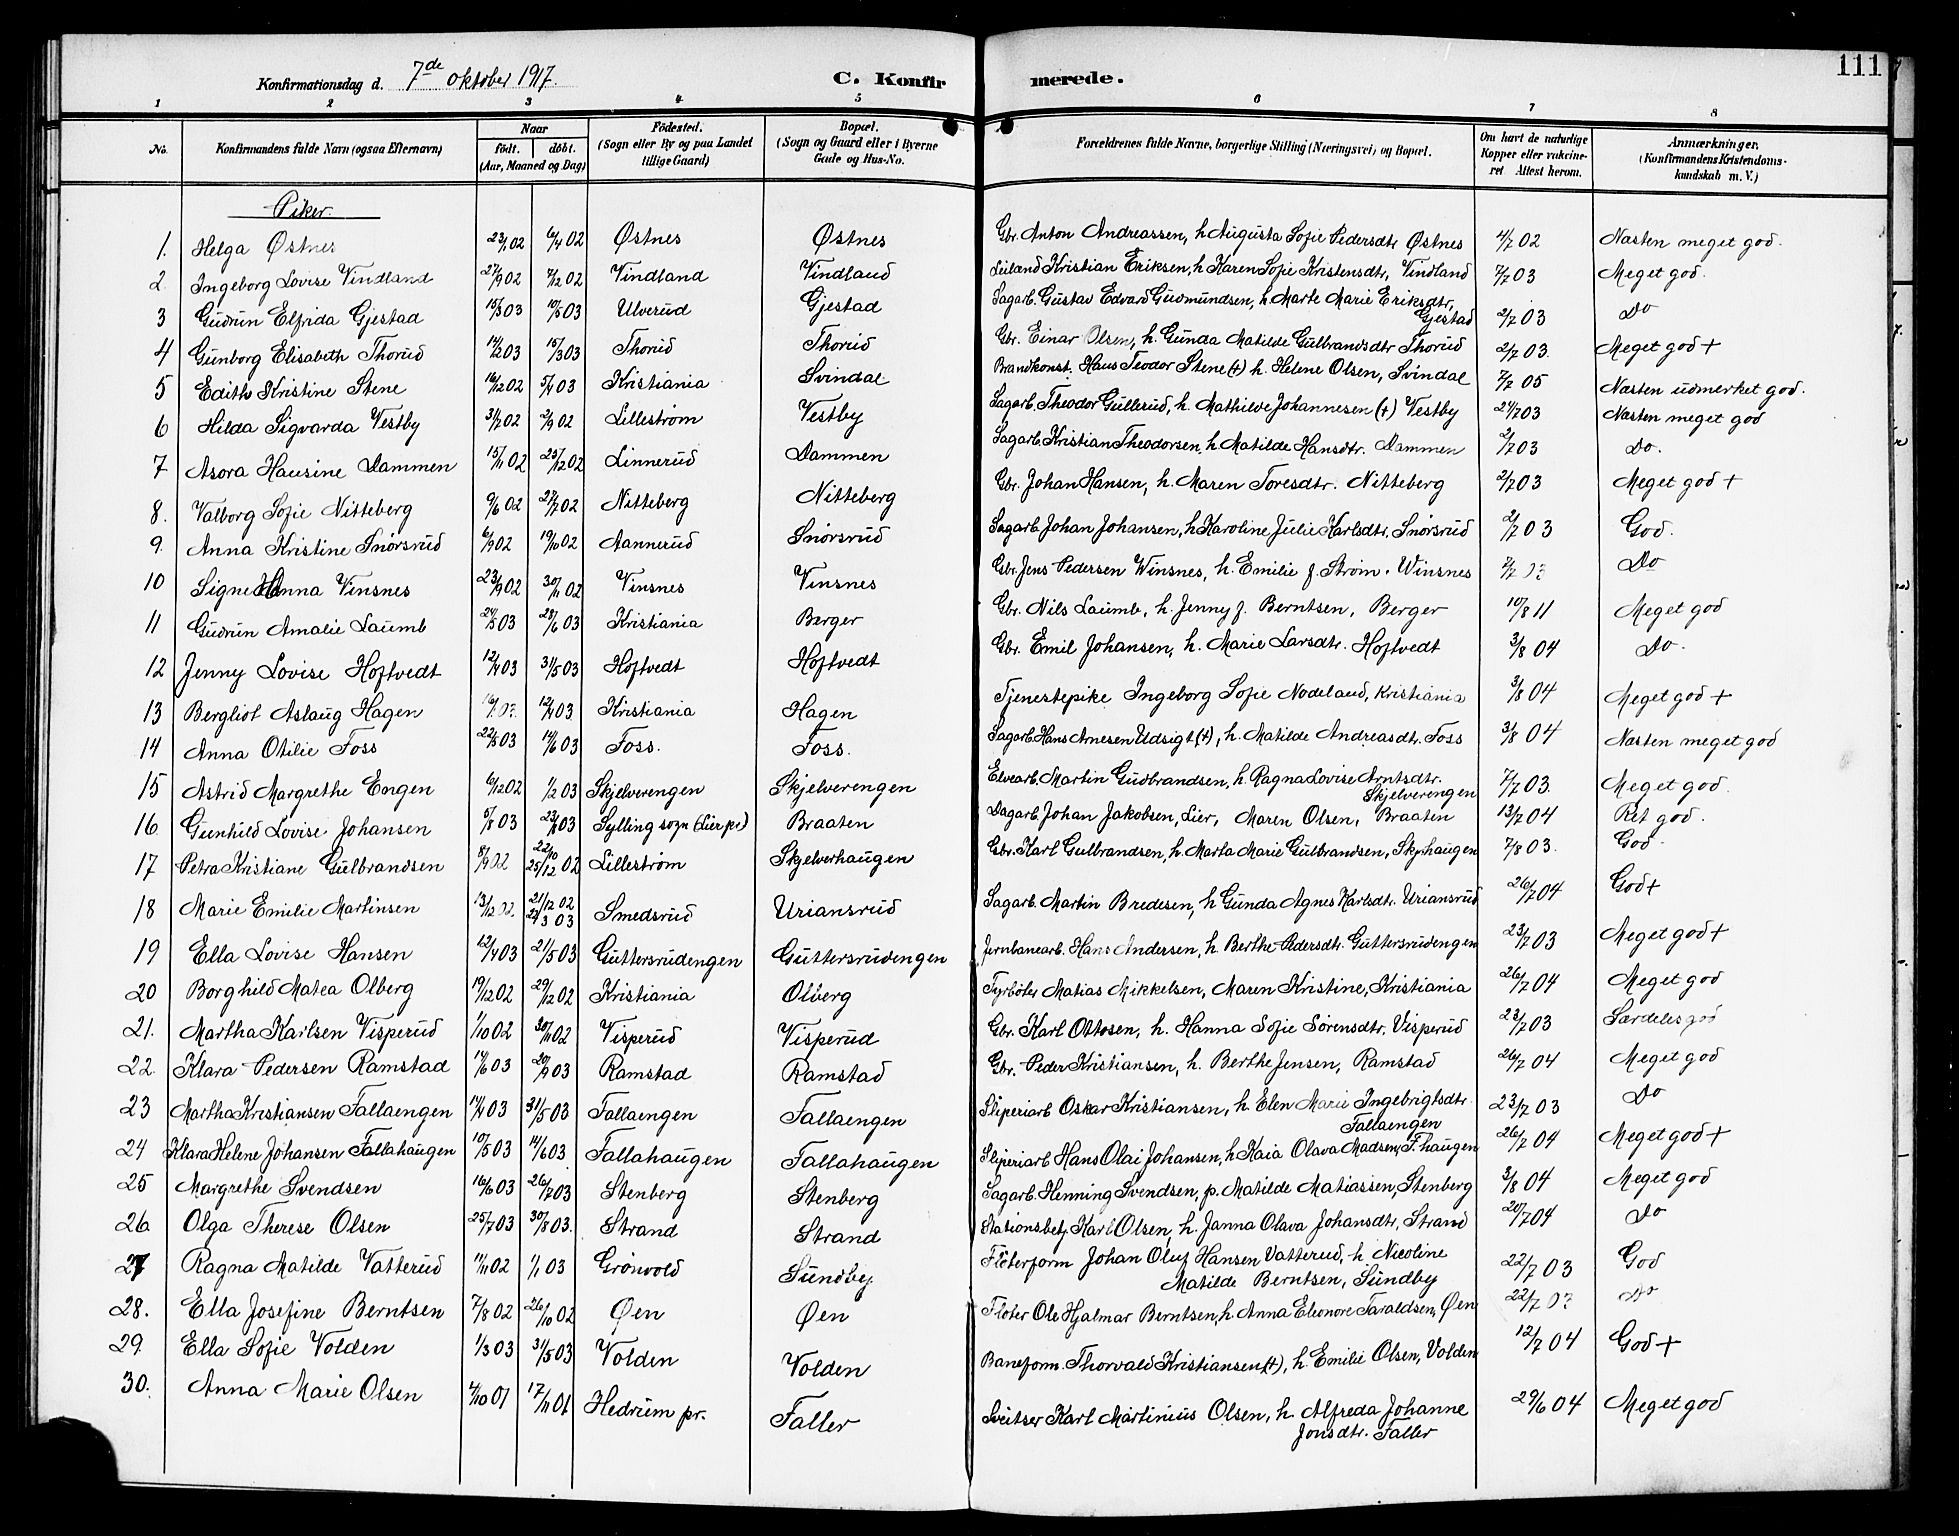 111
Konfirmationsdag d. 7de oktober 1917. C. Konfirmerede.
1 2 3 4 5 6 7 8
No. Konfirmandens fulde Navn (ogsaa Efternavn) Naar født. døbt. (Aar, Maaned og Dag) Fødested. (Sogn eller By og paa Landet tillige Gaard) Bopæl. (Sogn og Gaard eller i Byerne Gade og Hus-No. Forældrenes fulde Navne, borgerlige Stilling (Næringsvei) og Bopæl. Om havt de naturlige Kopper eller vakcineret Attest herom. Anmærkninger, (Konfirmandens Kristendomskundskab m. V.)
Piker.
1. Helga Østnes 23/1 02 6/4 02 Østnes Østnes Gbr. Anton Andreassen, h Augusta Sofie Pedersdtr Østnes 4/7 02 Næsten meget god.
2. Ingeborg Lovise Vindland 27/9 02 7/12 02 Vindland Vindland Leiland Kristian Eriksen, h. Karen Sofie Kristensdtr, Vindland 7/7 03 Meget god.
3 Gudrun Elfrida Gjestad 15/3 03 10/5 03 Ulverud Gjestad Sagarb. Gustav Edvard Gudmundsen, h. Marte Marie Eriksdtr, Gjestad 2/7 03 Do
4 Gunborg Elisabeth Thorud 14/2 03 15/3 03 Thorud Thorud Gbr. Einar Olsen, h. Gunda Matilde Gulbrandsdtr Thorud 2/7 03. Meget god +
5 Edith Kristine Stene 16/12 02 5/4 03 Kristiania Svindal Brandkonst. Hans Teodor Stene (+) h. Helene Olsen, Svindal 7/7 05 Næsten udmerket god.
6 Hilda Sigvarda Vestby 3/7 02 2/9 02 Lillestrøm Vestby Sagarb. Theodor Gullerud, h. Mathilde Johannesen (+) Vestby 24/7 03 Næsten meget god
7 Asora Hansine Dammen 15/11 02 25/12 02 Linnerud Dammen Sagarb. Kristian Theodorsen, h. Matilde Hansdtr. Dammen 2/7 03 Do.
8. Valborg Sofie Nitteberg 9/6 02 27/7 02 Nitteberg Nitteberg Gbr. Johan Hansen, h. Maren Toresdtr. Nitteberg 2/7 03 Meget god +
9. Anna Kristine Snørsrud 6/9 02 19/10 02 Aannerud Snørsrud Sagarb. Johan Johansen, h Karoline Julie Karlsdtr. Snørsrud 2/7 03 God.
10 Signe Hanna Vinsnes 23/9 02 30/11 02 Vinsnes Vinsnes Gbr. Jens Pedersen Winsnes, h. Emilie f. Strøm. Winsnes 7/7 03 Do
11 Gudrun Amalie Laumb 24/5 03 28/6 03 Kristiania Berger Gbr. Nils Laumb, h. Jenny f. Berntsen, Berger 10/8 11 Meget god
12 Jenny Lovise Hoftvedt 12/4 03 31/5 03 Hoftvedt Hoftvedt Gbr. Emil Johansen, h. Marie Larsdtr. Hoftvedt 3/8 04 Do.
13 Bergliot Aslaug Hagen 12/4 03 Kristiania Hagen Tjenestepike Ingeborg Sofie Nodeland, Kristiania 3/8 04 Meget god +
14 Anna Otilie Foss 22/3 03 14/6 03 Foss. Foss. Sagarb. Hans Arnesen Udsigt (+), h. Matilde Andreasdtr. Foss 3/8 04 Næsten meget god
15 Astrid Margrethe Engen 6/12 02 1/2 03 Skjelverengen Skjelverengen Elvearb. Martin Gudbrandsen, h. Ragna Lovise Arntsdtr. Skjelverengen 7/7 03. Meget god.
16 Gunhild Lovise Johansen 5/8 03 23/8 03 Sylling sogn (Lier pr) Braaten Dagarb. Johan Jakobsen, Lier, Maren Olsen, Braaten 13/7 04 Ret god.
17 Petra Kristiane Gulbrandsen 8/9 02 22/10 25/12 02 Lillestrøm Skjelverhaugen Gbr. Karl Gulbrandsen, h. Marta Marie Gulbrandsen, Skjhaugen 7/8 03. God.
18 Marie Emilie Martinsen 13/12 02. 21/12 02 22/3 03 Smedsrud Uriansrud Sagarb. Martin Bredesen, h Gunda Agnes Karlsdtr. Uriansrud 26/7 04 God +
19 Ella Lovise Hansen 12/4 03 21/5 03 Guttersrudengen Guttersrudengen Jernbanearb. Hans Andersen, h. Berthe Pedersdtr. Guttersrudengen 23/7 03 Meget god +
20 Borghild Matea Olberg 19/12 02 29/12 02 Kristiania Olberg Fyrbøter Matias Mikkelsen, Maren Kristine, Kristiania 26/7 04 Meget god
21. Martha Karlsen Visperud 1/10 02 30/11 02 Visperud Visperud Gbr. Karl Ottosen, h. Hanna Sofie Sørensdtr. Visperud 23/7 03 Særdeles god
22. Klara Pedersen Ramstad 14/6 03 20/9 03 Ramstad Ramstad Gbr. Peder Kristiansen, h. Berthe Jensen, Ramstad 26/7 04 Meget god
23 Martha Kristiansen Fallaengen 14/4 03 31/5 03 Fallaengen Fallaengen Sliperiarb Oskar Kristiansen, h. Elen Marie Ingebrigtsdtr. Fallaengen 23/7 03 Do
24 Klara Helene Johansen Fallahaugen 10/5 03 14/6 03 Fallahaugen Fallahaugen Sliperiarb Hans Olai Johansen, h Kaia Olava Madsen, F.haugen 26/7 04 Meget god +
25 Margrethe Svendsen 16/6 03 26/7 03 Stenberg Stenberg Sagarb. Henning Svendsen, p. Matilde Matiassen, Stenberg 3/8 04 Meget god
26 Olga Therese Olsen 25/7 03 30/8 03. Strand Strand Stationsbetj. Karl Olsen, h. Janna Olava Johansdtr, Strand 20/7 04 Do
27 Ragna Matilde Vatterud 11/11 02 1/1 03 Grønvold Sundby Fløterform Johan Oluf Hansen Vatterud, h. Nicoline Matilde Berntsen, Sundby 22/7 03 God
28. Ella Josefine Berntsen 7/8 02 26/10 02 Øen Øen Fløter Ole Hjalmar Berntsen, h. Anna Eleonore Taraldsen, Øen 22/7 03 Do
29. Ella Sofie Volden 1/3 03 31/5 03 Volden Volden Baneform. Thorvald Kristiansen (+), h. Emilie Olsen, Volden 12/7 04 God +
30. Anna Marie Olsen 4/10 01 17/11 01 Hedrum pr. Faller Sveitser Karl Martinius Olsen, h. Alfreda Johanne Jonsdtr. Faller 29/6 04 Meget god